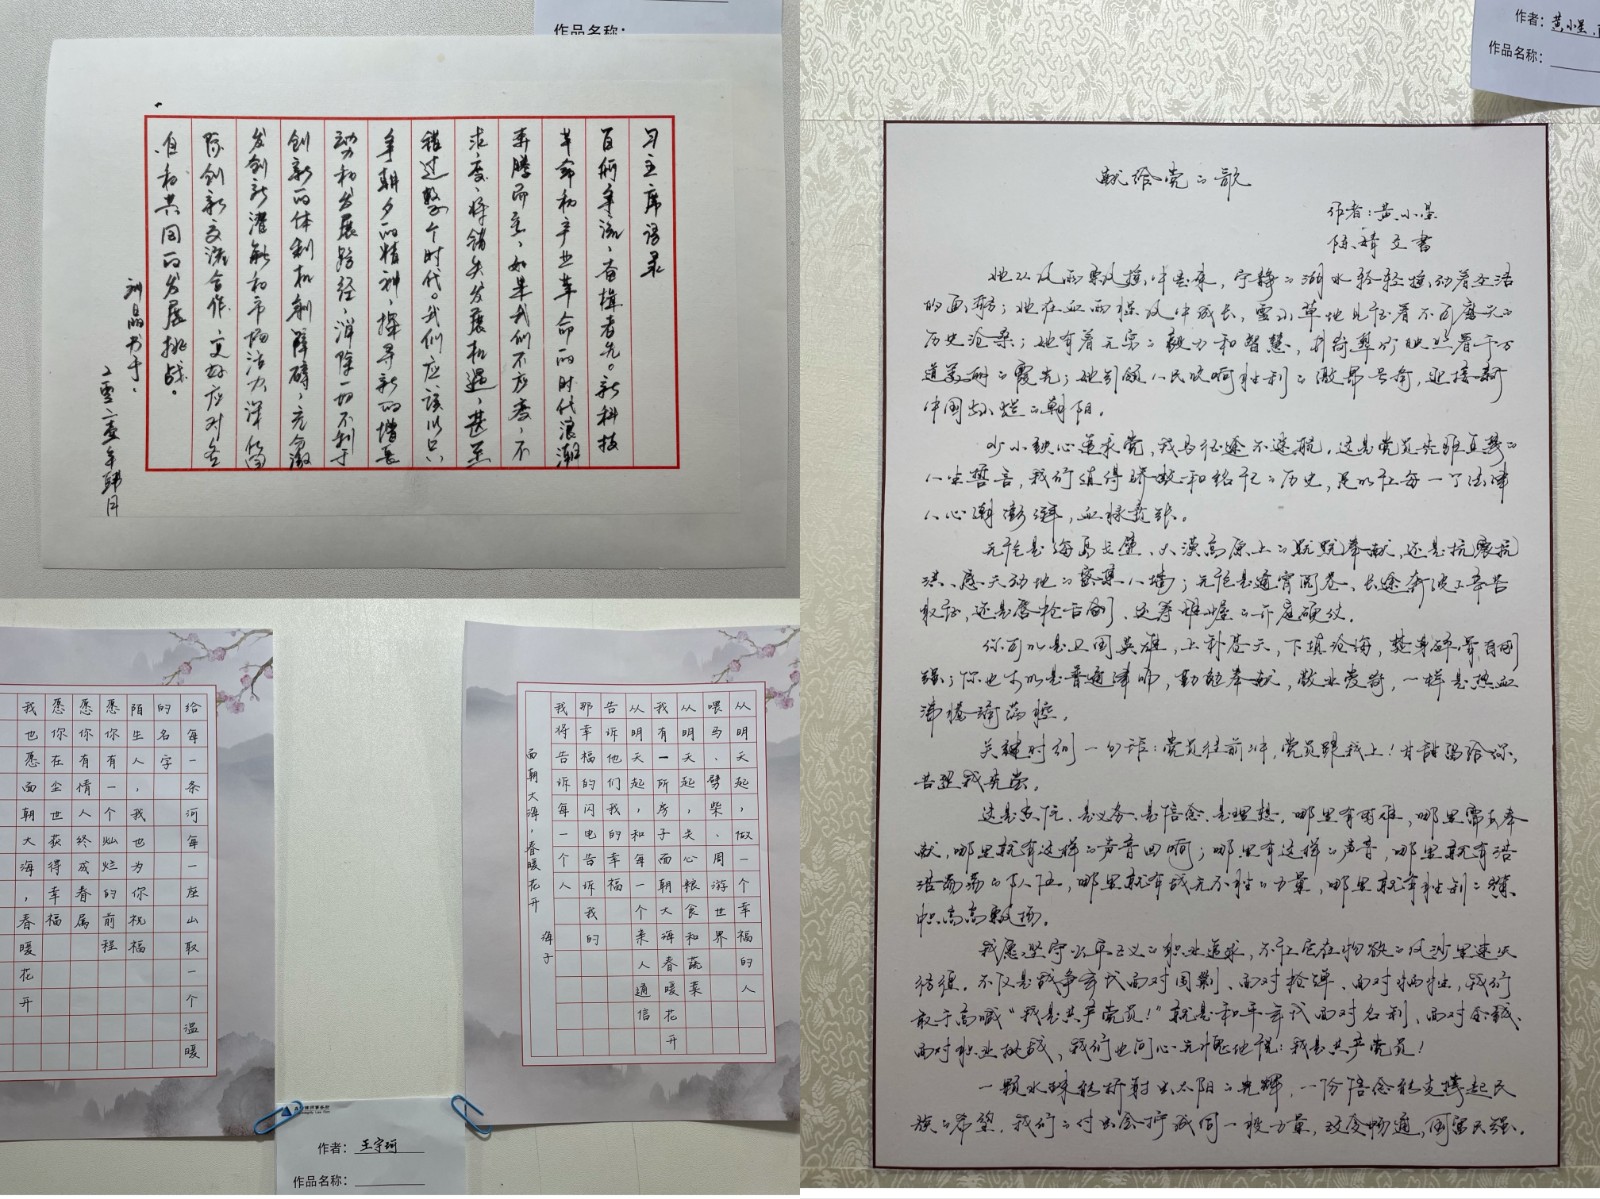 作品名称：
习主席语录
百舸争流，奋楫者先。新科技
革命和产业革命的时代浪潮
奔腾而至，如果我们不应变、不
求变，将错失发展机遇，甚至
错过整个时代。我们应该以只
争朝夕的精神，探寻新的增长
动力和发展路径，消除一切不利于
创新的体制机制障碍，充分激
发创新潜能和市场活力，深化国
际创新交流合作，更好应对各
自和共同的发展挑战。
刘晶书于
从明天起，做一个幸福的人
喂马、劈柴、周游世界
从明天起，关心粮食和蔬菜
我有一所房子面朝大海春暖花开
从明天起，和每一个亲人通信
告诉他们我的幸福
那幸福的闪电告诉我的
我将告诉每一个人
面朝大海，春暖花开 海子
给每一条河每一座山取一个温暖
的名字
陌生人，我也为你祝福
愿你有一个灿烂的前程
愿你有情人终成眷属
愿你在尘世获得幸福
我也愿面朝大海，春暖花开
作者：王宇珂
作品名称：
作者：黄小星、
作品名称：
献给党的歌
作者：黄小星
陈婧文书
她从风雨飘摇中走来，宁静的湖水轻轻摇动着生活
的画舫；她在血雨腥风中成长，雪山草地见证着不可磨灭的
历史沧桑；她有着无穷的毅力和智慧，井冈犁杉映照着千万
道美丽的霞光；她引领人民吹响胜利的激昂号角，迎接新
中国灿烂的朝阳。
少小铁心追求党，戎马征途不迷航，这是党员先驱真挚的
人生誓言，我们值得骄傲和铭记的历史，足以让每一个法律
人心潮澎湃，血脉贲张。
无论是海岛戈壁、大漠高原上的默默奉献，还是抗震抗
洪、感天动地的密集人墙；无论是通宵阅卷、长途奔波的辛苦
取证，还是唇枪舌剑、运筹帷幄的开庭硬仗。
你可以是卫国英雄，上补苍天，下填沧海，整身碎骨自刚
强；你也可以是普通律师，勤勉奉献，敬业爱岗，一样是热血
沸腾满荡荡。
关键时刻一句话：党员往前冲，党员跟我上！甘甜留给你，
苦涩我先尝。
这是责任、是义务、是信念、是理想，哪里有困难，哪里需要奉
献，哪里就有这样的声音回响；哪里有这样的声音，哪里就有浩
浩荡荡的队伍，哪里就有战无不胜的力量，哪里就有胜利的旗
帜高高飘扬。
我愿坚守公平正义的职业追求，不让它在物欲的风沙里迷失
彷徨。不仅是战争年代面对围剿、面对枪弹、面对牺牲，我们
敢于高喊“我是共产党员！”就是和平年代面对名利、面对金钱、
面对职业挑战，我们也问心无愧地说：我是共产党员！
一颗水珠能折射出太阳的光辉，一份信念能支撑起民
族的希望，我们的付出会拧成同一股力量，政通畅通，国富民强。